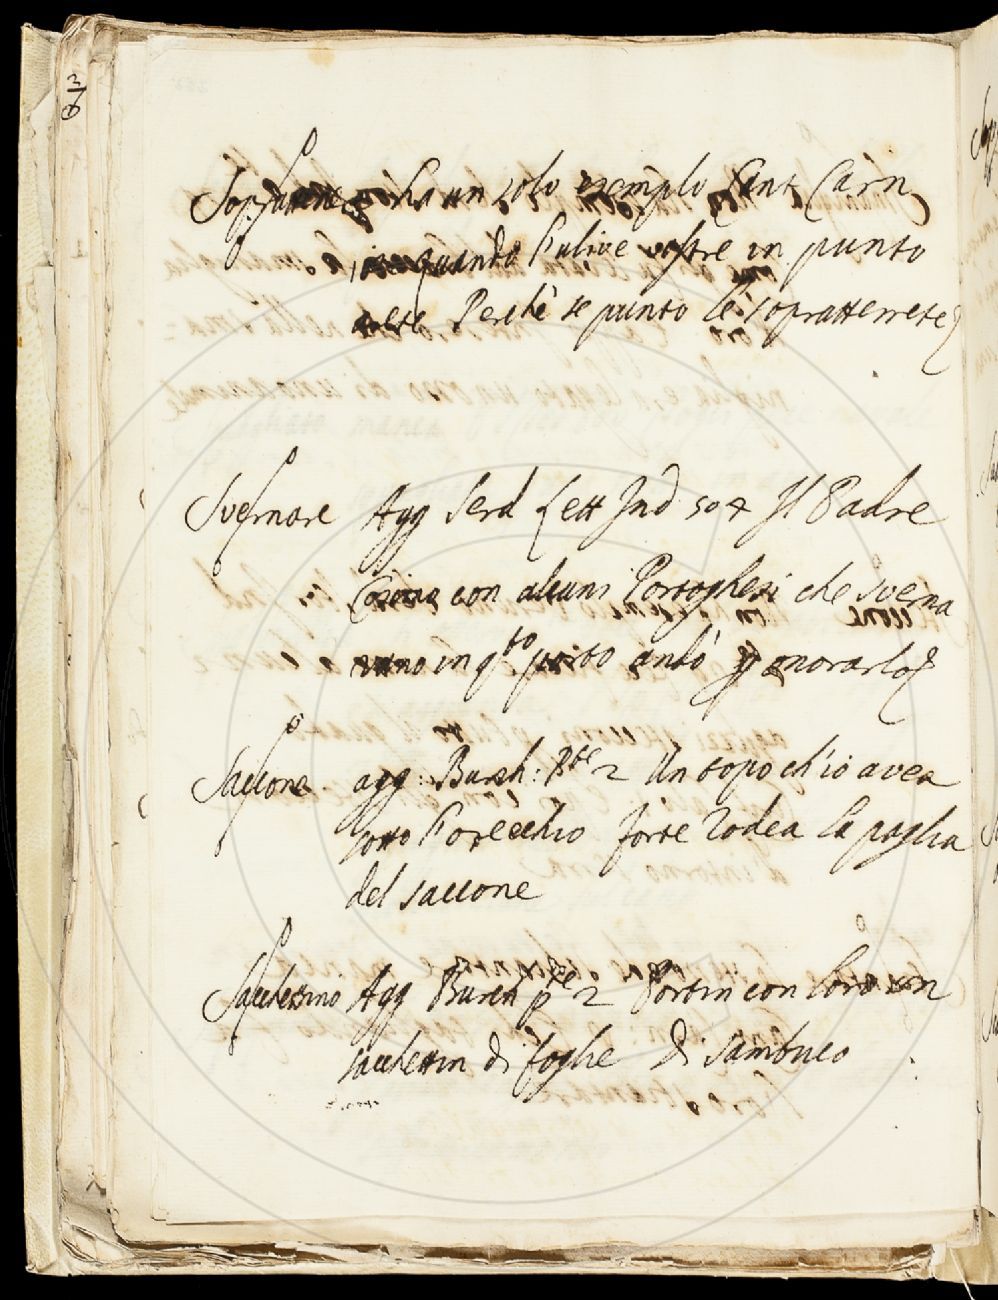 3/6
Soprattenere ha un solo esemplo Cant Carn
quando l'ulive vostre in punto
avete Perchè se punto le sopratterrete
Svernare Agg Serd Lett Ind 504 Il Padre
Cosimo con alcuni Portoghesi che sverna
vano in q.to porto andò ad onorarlo
Saccone agg: Burch: P.te 2 Un topo ch'io avea
sotto l'orecchio forte rodea la paglia
del saccone
Sacchettino Agg Burch p.te 2 Portin con loro un
sacchettin di foglie di sambuco